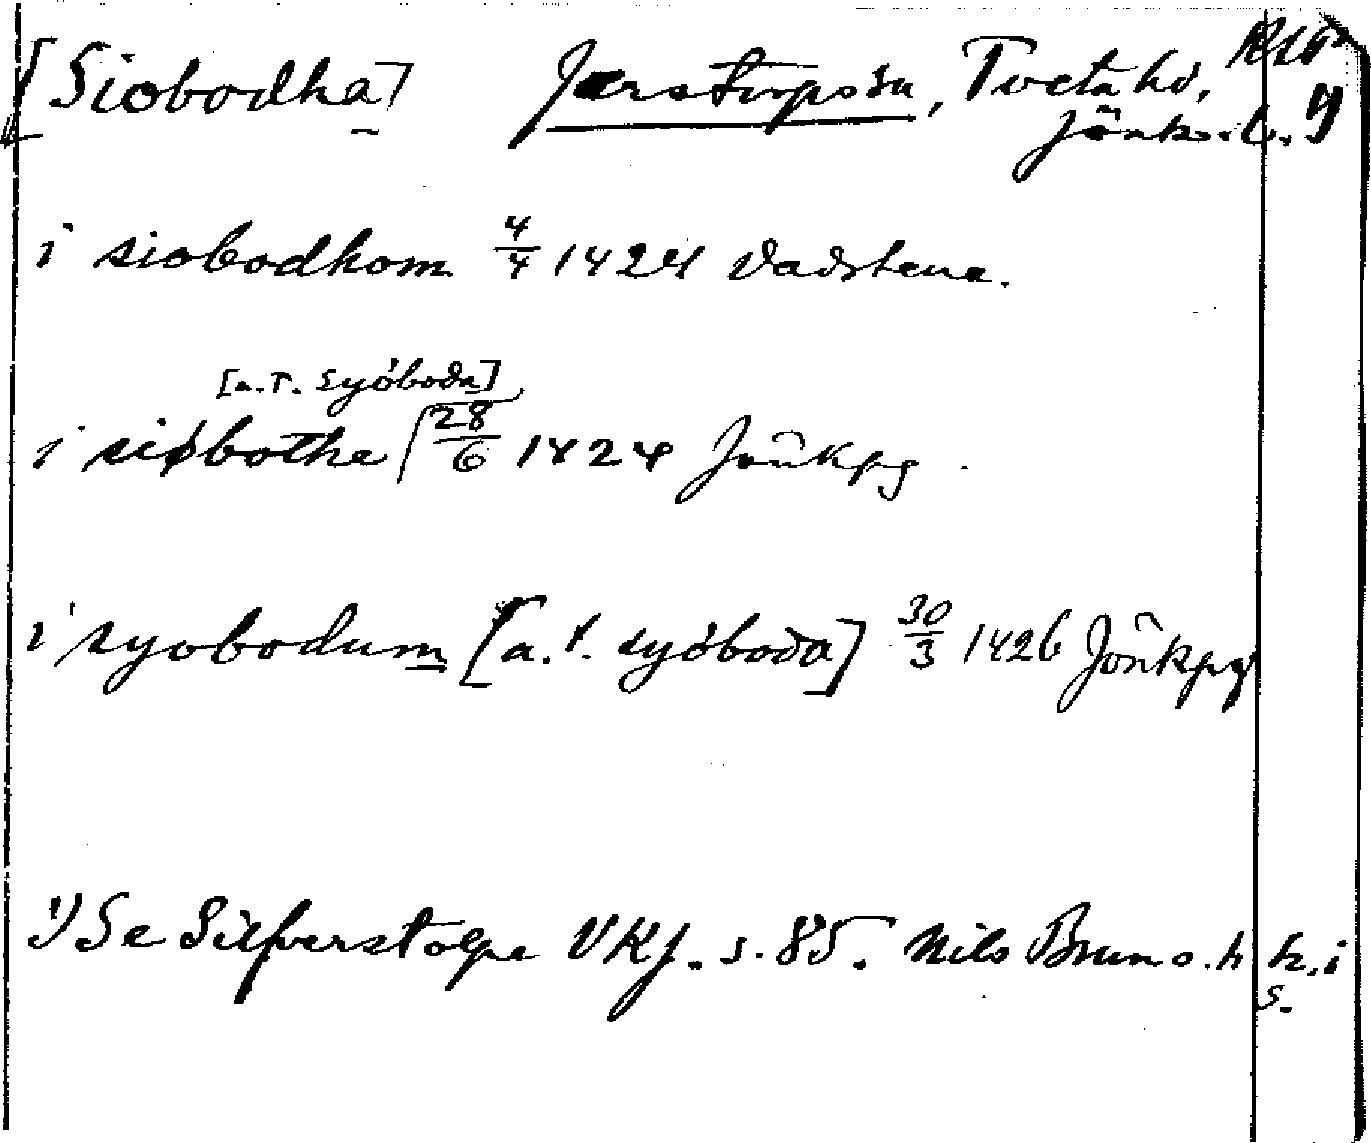 [Siobodha] Jærstorps sn, Tveta hd,
Jönk. l.
i siobodhom 4/4 1424 Vadstena.
[a.T. syóboða]
i siøbothe 28/6 1424 Jönkpg
i syobodum [a.t. syóboða] 30/3 1426 Jönkpg
1) Se Silfverstolpe VKJ. s. 85. Nils Brun o. h h. i
s.